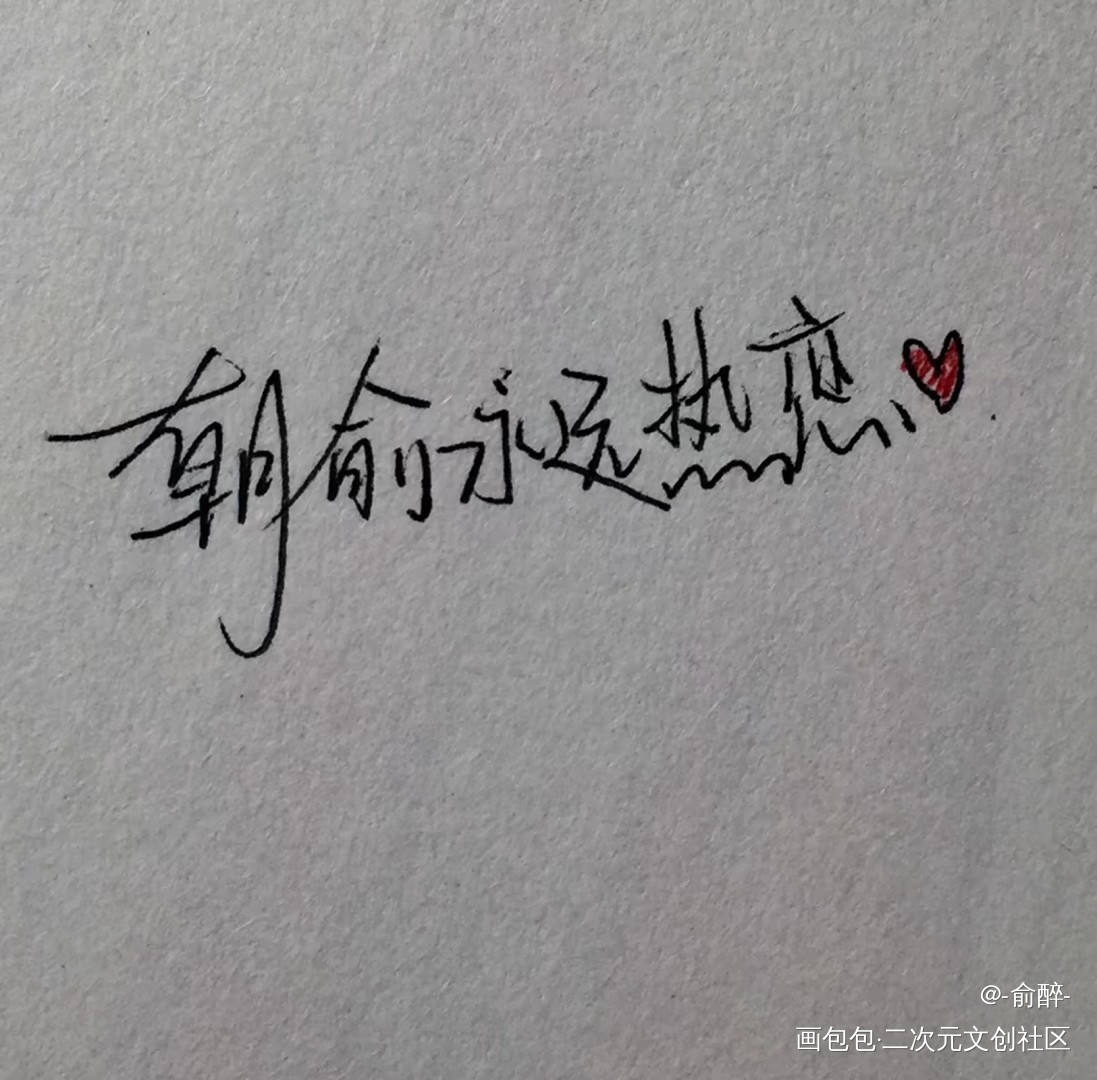 朝俞永远热恋
@-俞醉-
画包包·二次元文创社区